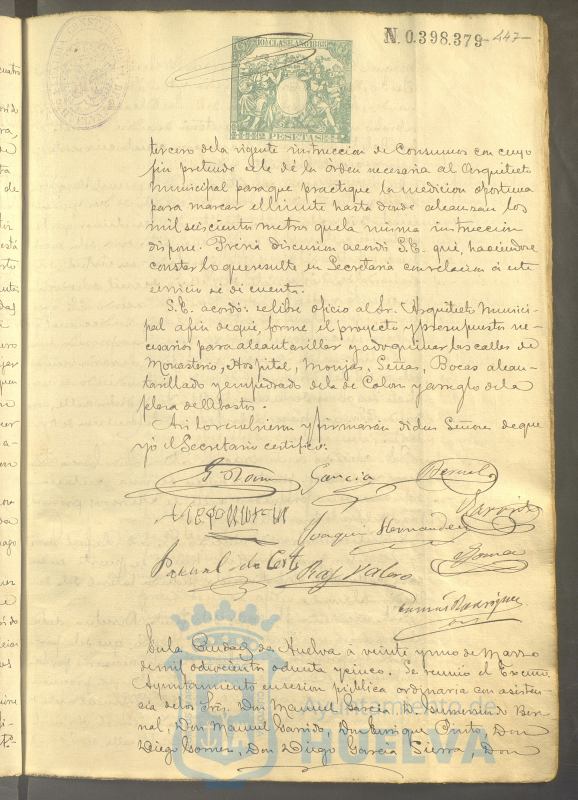 N. 0.398.379 447
10ª CLASE AÑO 1885
PESETAS
tercero de la vigente instruccion de Consumos con cuyo
fin pretende se le dé la órden necesaria al Arquitecto
municipal para que practique la medicion oportuna
para marcar el limite hasta donde alcanzan los
mil seiscientos metros que la misma instruccion
dispone. Prévia discusion acordó S.E. que, haciendose
constar lo que resulte en Secretaria con relacion á este
servicio se dé cuenta.
S.E. acordó: se libre oficio al Sr. Arquitecto Munici-
pal á fin de que, forme el proyecto y presupuesto ne-
cesarios para alcantarillar y adoquinar las calles de
Monasterio, Hospital, Monjas, Señas, Bocas alcan-
tarillado y empedrado de la de Colon y arreglo de la
plaza de Abastos.
Asi lo resolvieron y firmarán dichos Señores de que
yó el Secretario certifico.
García
Joaquin Hernandez
Garrido
Gomez
Rodriguez
En la Ciudad de Huelva á veinte y uno de Marzo
de mil ochocientos ochenta y cinco. Se reunió el Excmo.
Ayuntamiento en sesion pública ordinaria con asisten-
cia de los Sres. Don Manuel García, D. Raimundo Ber-
nal, Don Manuel Garrido, Don Enrique Pinto, Don
Diego Gomez, Don Diego García Sierra, Don
Ayuntamiento de
HUELVA